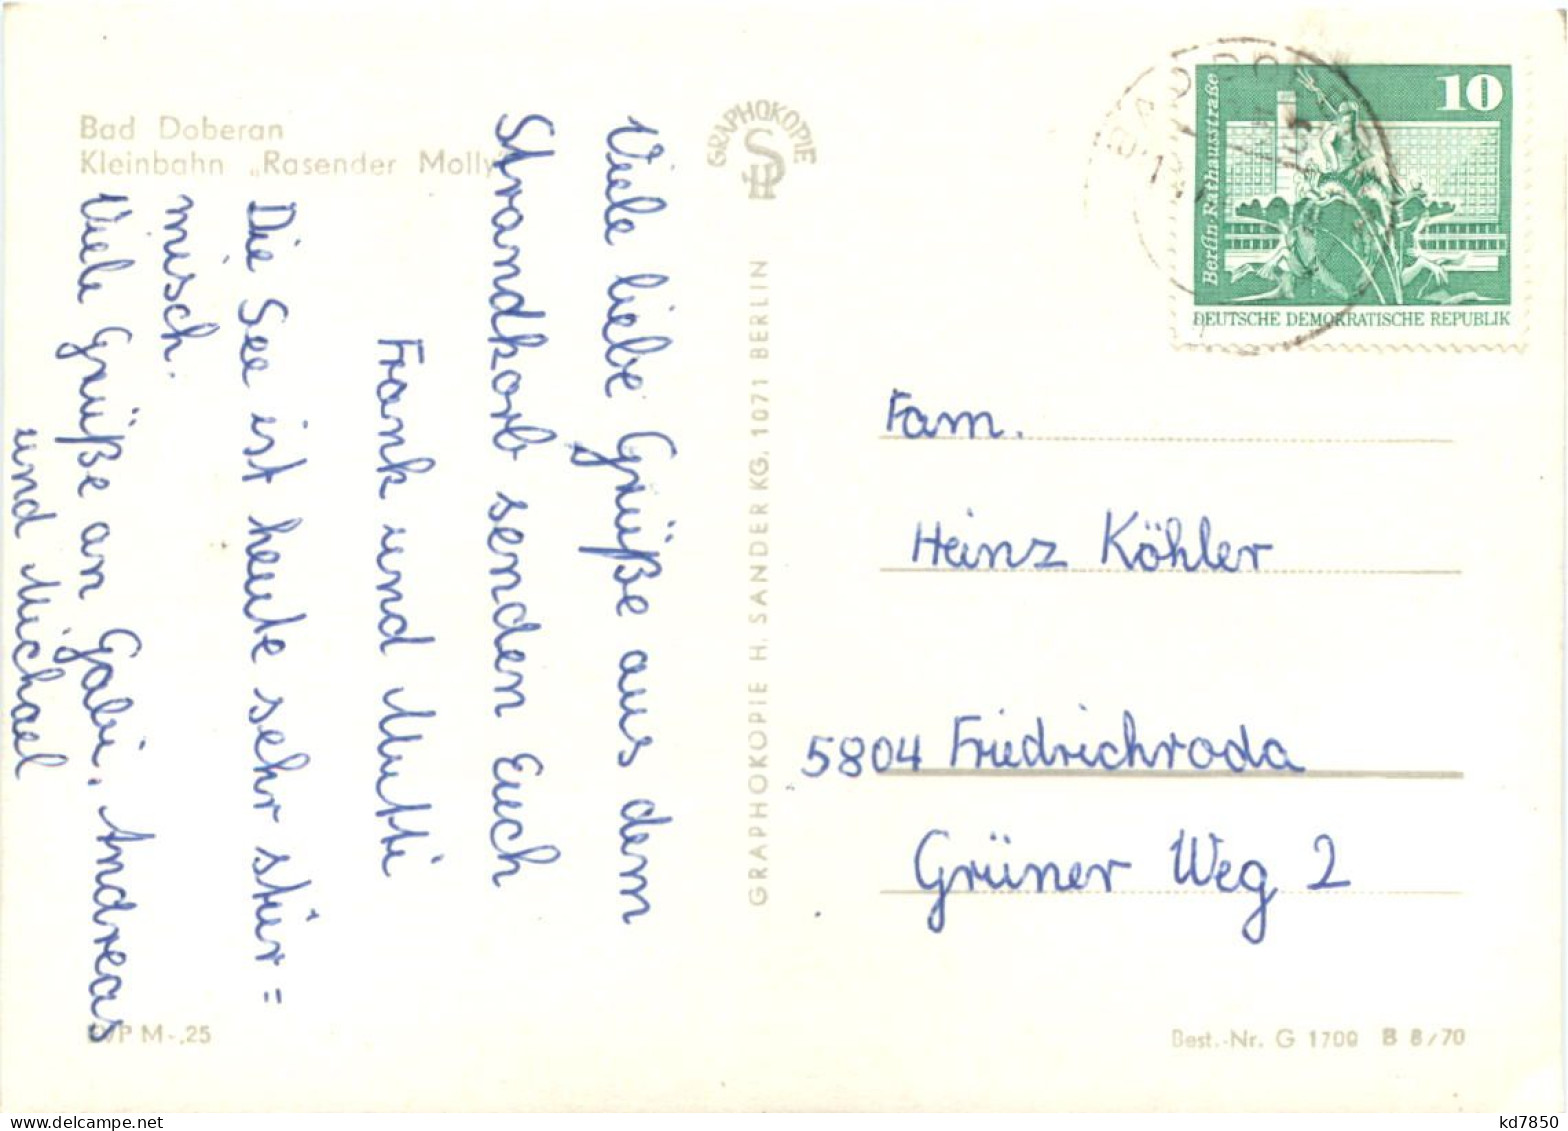 Bad Doberan
Kleinbahn „Rasender Molly"
Viele liebe Grüße aus dem
Strandkorb senden Euch
Frank und Mutti
Die See ist heute sehr stür=
misch.
Viele Grüße an Gabi, Andreas
und Michael
GRAPHOKOPIE
H S
GRAPHOKOPIE H. SANDER KG, 1071 BERLIN
BAD DO
10
Berlin-Rathausstraße
DEUTSCHE DEMOKRATISCHE REPUBLIK
Fam.
Heinz Köhler
5804 Friedrichroda
Grüner Weg 2
EVP M -,25
Best.-Nr. G 1700 B 8/70
kd7850